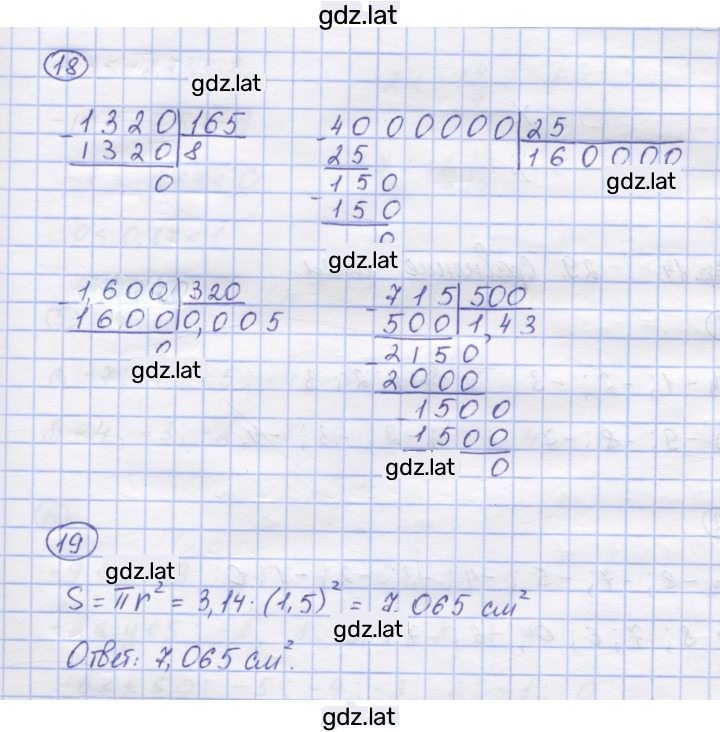 gdz.lat
18
gdz.lat
1320 165
1320 8
0
4000000 25
25 160000
150
150
0
gdz.lat
gdz.lat
1,600 320
1600 0,005
0
gdz.lat
715 500
500 1,43
2150
2000
1500
1500
gdz.lat 0
19
gdz.lat
S = πr² = 3,14 · (1,5)² = 7.065 см²
gdz.lat
Ответ: 7,065 см².
gdz.lat